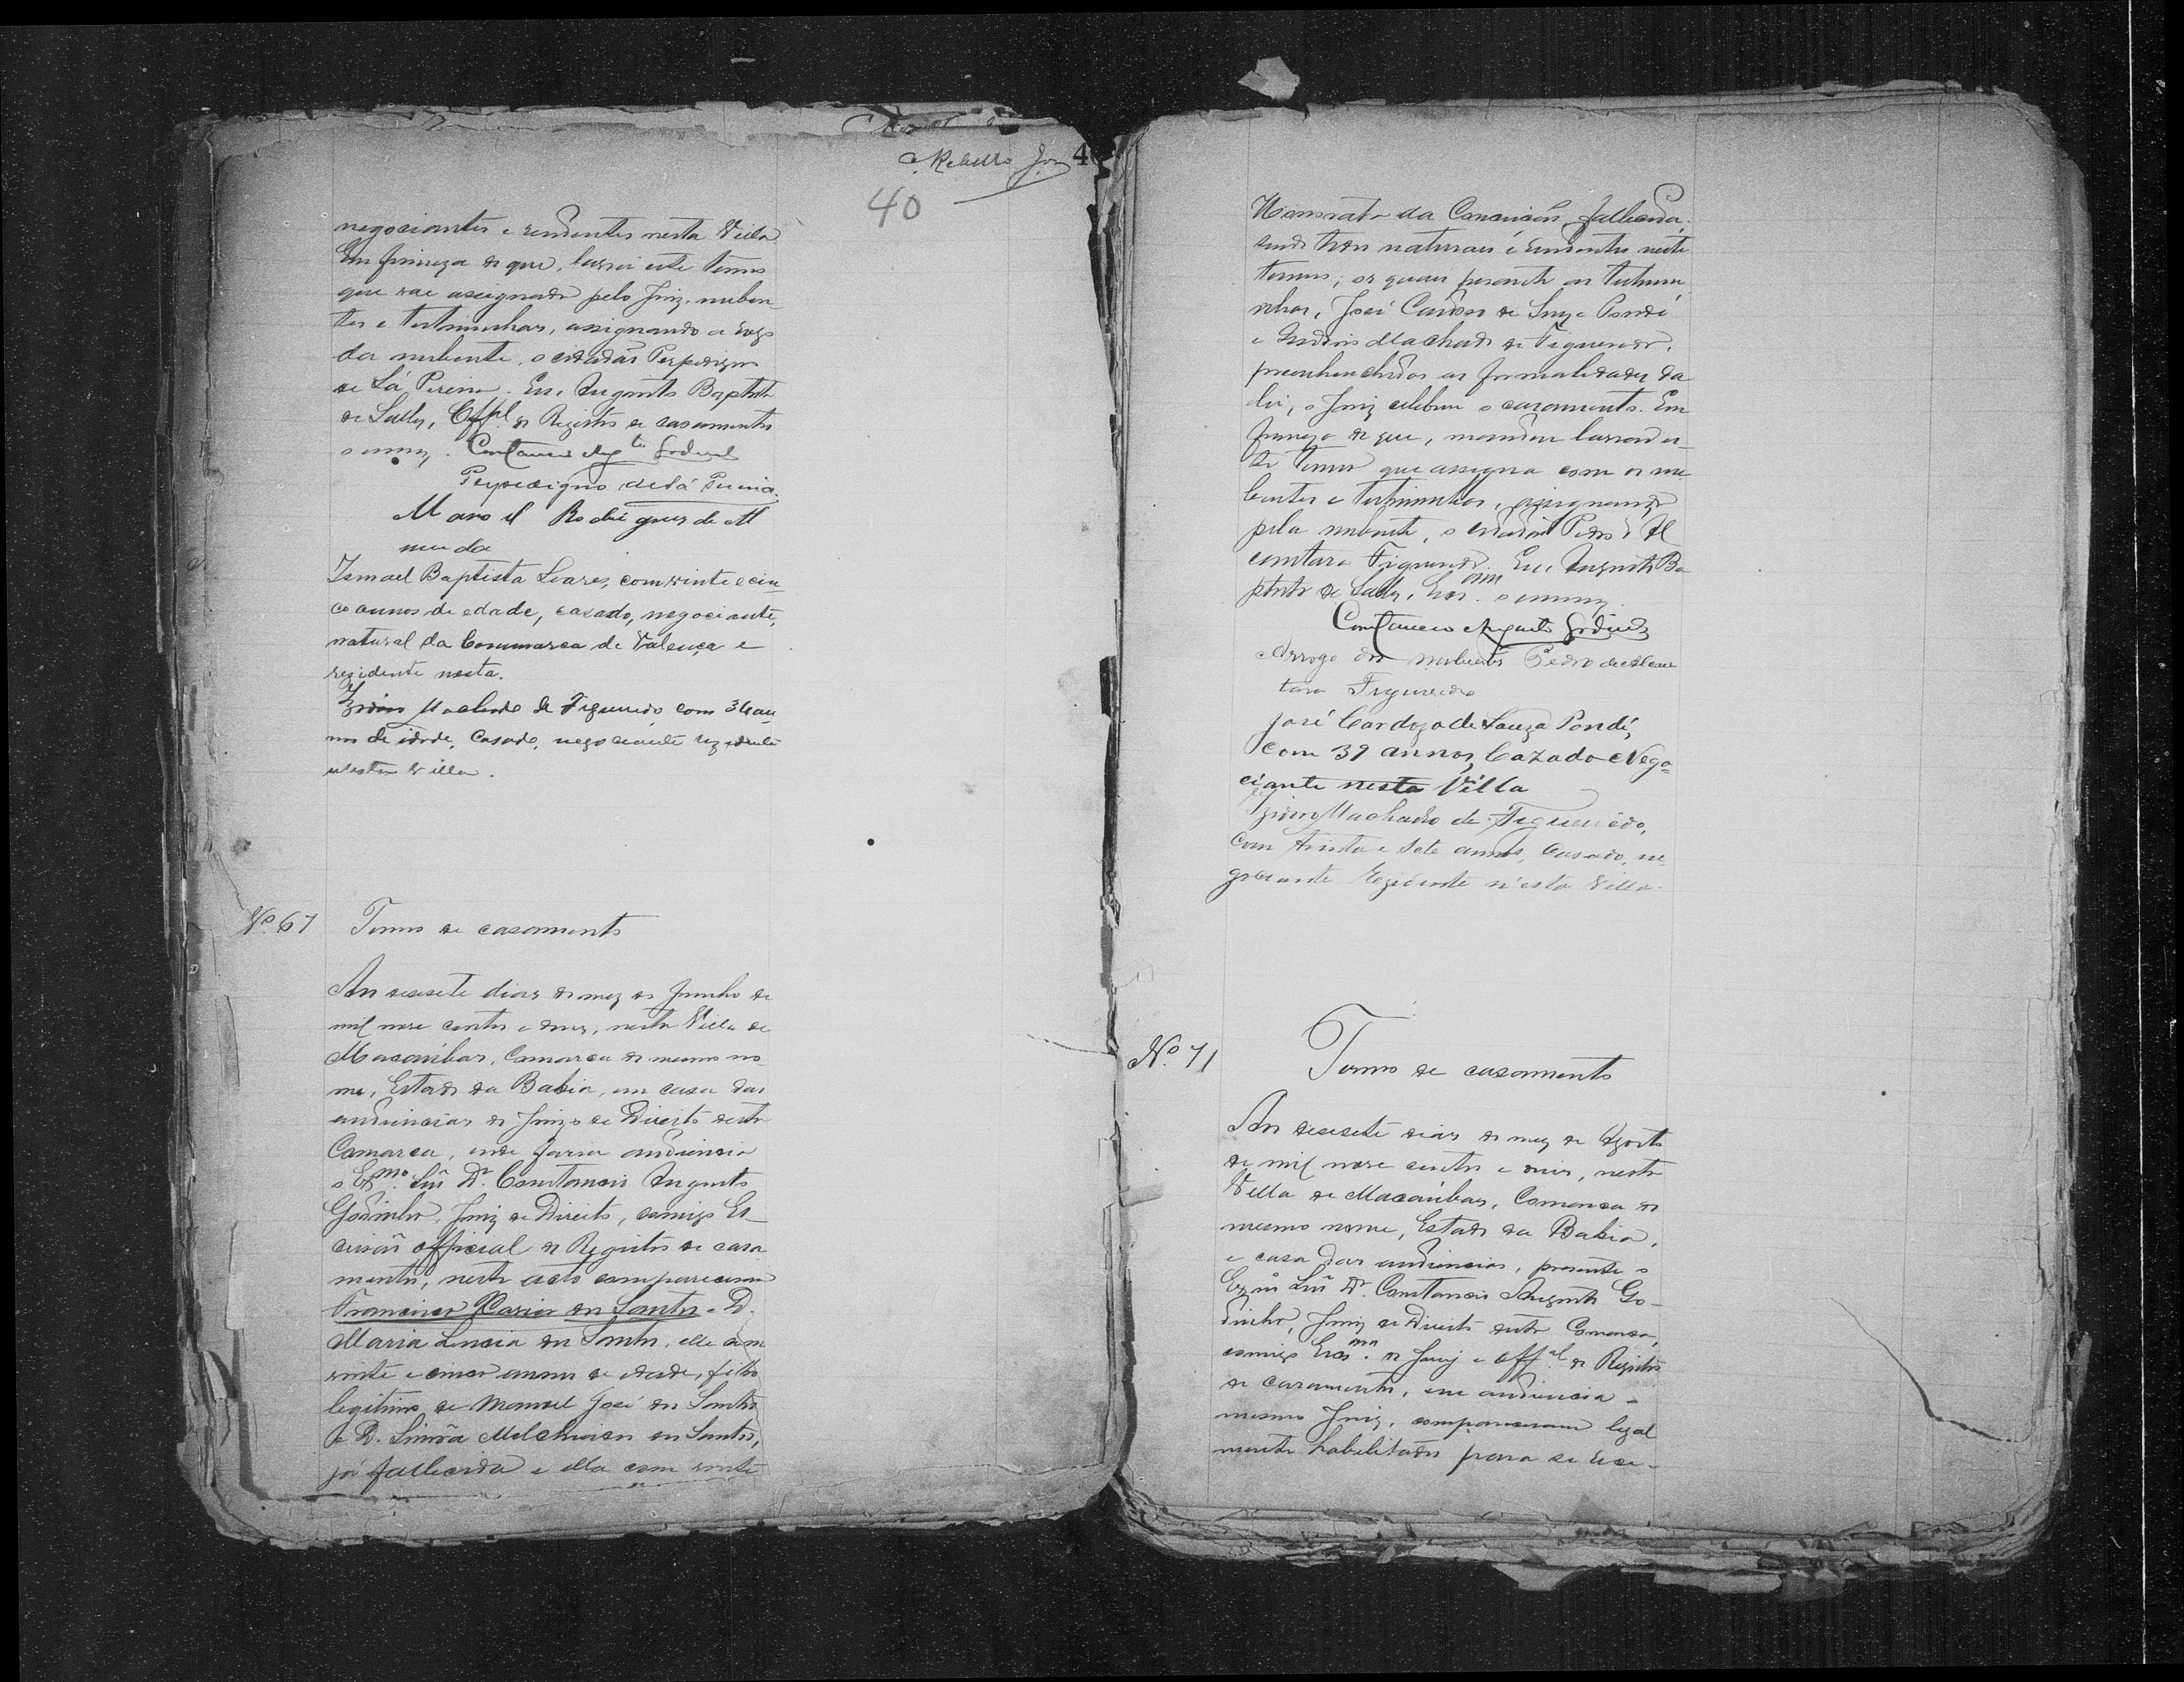 Rebello
40
negociantes e residentes nesta Villa
Em firmeza do que, lavrei este termo
que vae assignado pelo Juiz, nuben-
tes e testimunhas, assignando a rogo
da nubente, o cidadão Perpedigno
de Sá Pereira. Eu, Augusto Baptista
de Salles, Offl de Registro de casamentos
o escrevy. Constancio Augto Godinho
Perpedigno de Sá Pereira.
Manoel Rodrigues de
Ismael Baptista Soares, com vinte e cin-
co annos de edade, casado, negociante,
natural da Commarca de Valença e
rezidente nesta.
Izidoro Machado de Figueredo com 36 an-
nos de idade, Casado, negociante rezidente
nesta Villa.
No. 67 Termo de casamento
Aos desesete dias do mez de Junho de
mil nove centos e dous, nesta Villa de
Macaúbas, Comarca do mesmo no-
me, Estado da Bahia, em casa das
audiencias do Juizo de Direito desta
Comarca, onde fazia audiencia
o Exmo. Snr Dr. Constancio Augusto
Godinho, Juiz de Direito, comigo Es-
crivão official do Registro de casa
mento, neste acto compareceram
Francisco Xavier dos Santos e D.
Maria Lucia dos Santos, elle com
vinte e cinco annos de idade, filho
legitimo de Manoel José dos Santos
e D. dos Santos,
já fallecida e ella com vinte
Honorata da Conceição, fallecida,
sendo naturaes e residentes neste
termo, os quaes perante as testimu-
nhas, José Cardoso de Souza Pondé
e Izidoro Machado de Figueredo,
preenhenchidas as formalidades da
lei, o Juiz celebrou o casamento. Em
firmeza do que, mandou lavrar es-
te termo que assigna com os nu-
bentes e testimunhas, assignando
pela nubente, o cidadão Pedro d'Al
cantara Figueredo. Eu, Augusto Ba-
ptista de Salles, Escram o escrevy
Constancio Augusto Godinho
Arrogo dos nubentes Pedro de Alcan
tara Figueredo
José Cardozo de Souza Pondé,
com 39 annos, Cazado e Nego=
ciante nesta Villa
Izidoro Machado de Figueiredo,
com trinta e sete annos, Casado, ne-
gociante Rezidente n'esta Villa.
No. 71 Termo de casamento
Aos desesete dias do mez de Agosto
de mil nove centos e dois, nesta
Villa de Macaúbas, Comarca do
mesmo nome, Estado da Bahia,
e casa das audiencias, presente o
Exmo Snr Dr. Constancio Augusto Go-
dinho, Juiz de Direito desta Comarca,
comigo Escram. do Juiz e offal do Registro
de casamento, em audiencia o
mesmo Juiz, compareceram legal
mente habilitados para se rece-